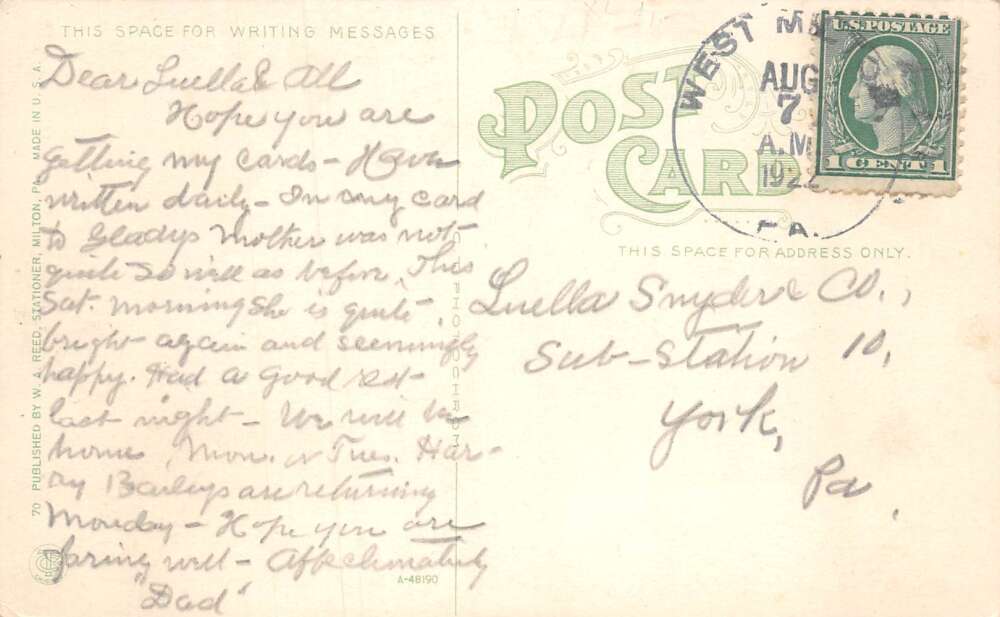 THIS SPACE FOR WRITING MESSAGES
Dear Luella & All
Hope you are
getting my cards - Have
written daily - In my card
to Gladys Mother was not
quite so well as before. This
Sat. morning she is quite
bright again and seemingly
happy. Had a good rest
last night - We will be
home Mon. or Tues. Har-
ry Baileys are returning
Monday - Hope you are
faring well - Affectionately
"Dad"
70 PUBLISHED BY W. A. REED, STATIONER, MILTON, PA. MADE IN U.S.A.
A-48190
POST CARD
THIS SPACE FOR ADDRESS ONLY.
WEST
AUG
7
A.M
1922
PA.
U.S. POSTAGE
1 CENT 1
Luella Snyder & Co.,
Sub-Station 10,
York,
Pa